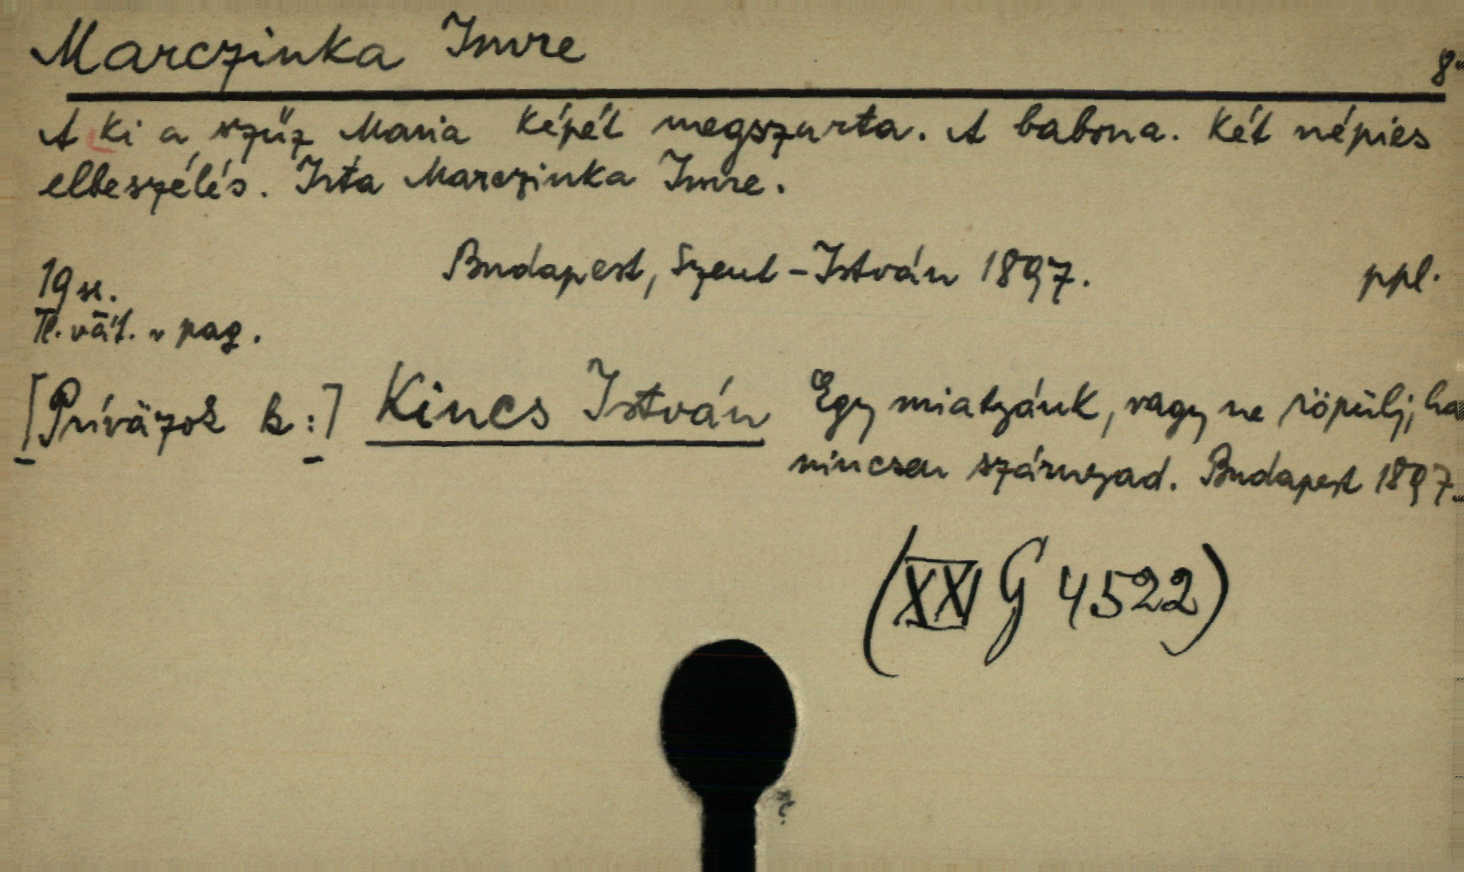 Marczinka Imre
8°
A ki a szűz Maria képét megszurta. A babona. Két népies
elbeszélés. Irta Marczinka Imre.
Budapest, Szent-István 1897. ppl.
19 sz.
Tl. vát. n pag.
[Privázok k:] Kincs István Egy miatyánk, vagy ne röpülj, ha
nincsen szárnyad. Budapest 1897.
(XXI G 4522)